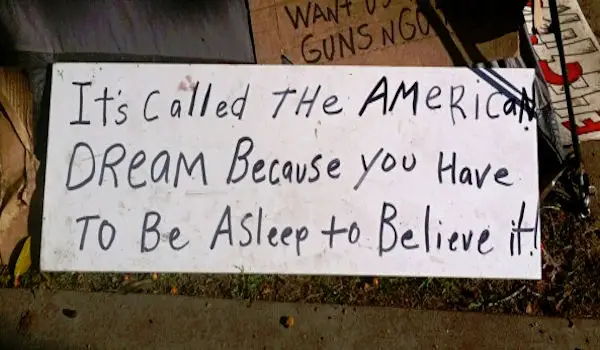 WANT US
GUNS N GO
It's Called THe AMeRicaN
DReaM Because you Have
To Be Asleep to Believe it!